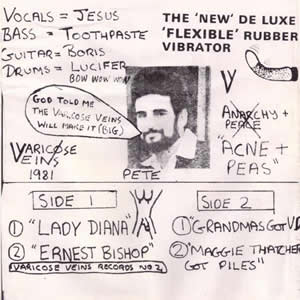 VOCALS = JESUS
BASS = TOOTHPASTE
GUITAR = BORIS
DRUMS = LUCIFER
BOW WOW WOW
THE 'NEW' DE LUXE
'FLEXIBLE' RUBBER
VIBRATOR
GOD TOLD ME
THE VARICOSE VEINS
WILL MAKE IT (BIG)
V
ANARCHY +
PEACE
"ACNE +
PEAS"
VARICOSE
VEINS
1981
PETE
SIDE 1
① "LADY DIANA"
② "ERNEST BISHOP"
VARICOSE VEINS RECORDS NO 2
SIDE 2
① "GRANDMAS GOT VD
② "MAGGIE THATCHER
GOT PILES"